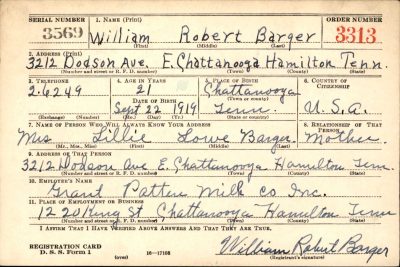 SERIAL NUMBER 1. NAME (Print) ORDER NUMBER
3569 William Robert Barger 3313
(First) (Middle) (Last)
2. ADDRESS (Print)
3212 Dodson Ave. E. Chattanooga Hamilton Tenn.
(Number and street or R. F. D. number) (Town) (County) (State)
3. TELEPHONE 4. AGE IN YEARS 5. PLACE OF BIRTH 6. COUNTRY OF CITIZENSHIP
2-6249 21 Chattanooga
DATE OF BIRTH (Town or county)
Sept 22 1919 Tenn. U.S.A.
(Exchange) (Number) (Mo.) (Day) (Yr.) (State or country)
7. NAME OF PERSON WHO WILL ALWAYS KNOW YOUR ADDRESS 8. RELATIONSHIP OF THAT PERSON
Mrs Lillie Lowe Barger. Mother.
(Mr., Mrs., Miss) (First) (Middle) (Last)
9. ADDRESS OF THAT PERSON
3212 Dodson Ave E. Chattanooga Hamilton Tenn
(Number and street or R. F. D. number) (Town) (County) (State)
10. EMPLOYER'S NAME
Grant Patten Milk Co Inc.
11. PLACE OF EMPLOYMENT OR BUSINESS
1220 King St Chattanooga Hamilton Tenn
(Number and street or R. F. D. number) (Town) (County) (State)
I AFFIRM THAT I HAVE VERIFIED ABOVE ANSWERS AND THAT THEY ARE TRUE.
William Robert Barger
REGISTRATION CARD
D. S. S. Form 1 (over) 16—17105 (Registrant's signature)